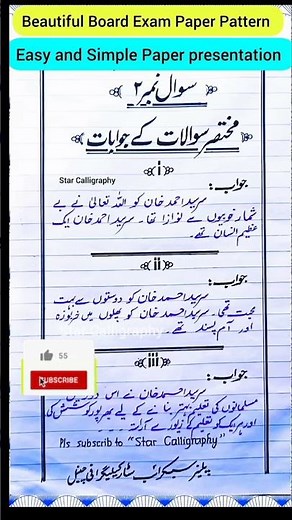 Beautiful Board Exam Paper Pattern
Easy and Simple Paper presentation
سوال نمبر ۲
مختصر سوالات کے جوابات
i
Star Calligraphy
جواب:
سرسید احمد خان کو اللہ تعالیٰ نے بے
شمار خوبیوں سے نوازا تھا۔ سرسید احمد خان ایک
عظیم انسان تھے۔
ii
جواب:
سرسید احمد خان کو دوستوں سے بہت
محبت تھی۔ سرسید احمد خان کو پھلوں میں خربوزہ
اور آم پسند تھے۔
55
SUBSCRIBE
iii
جواب:
سرسید احمد خان نے اس دور
مسلمانوں کی تعلیم بہتر بنانے کے لیے بھرپور کوشش کی
اور ہر ایک کو تعلیم کے زیور سے
Pls subscrib to "Star Calligraphy"
پلیز سبسکرائب سٹار کیلیگرافی چینل